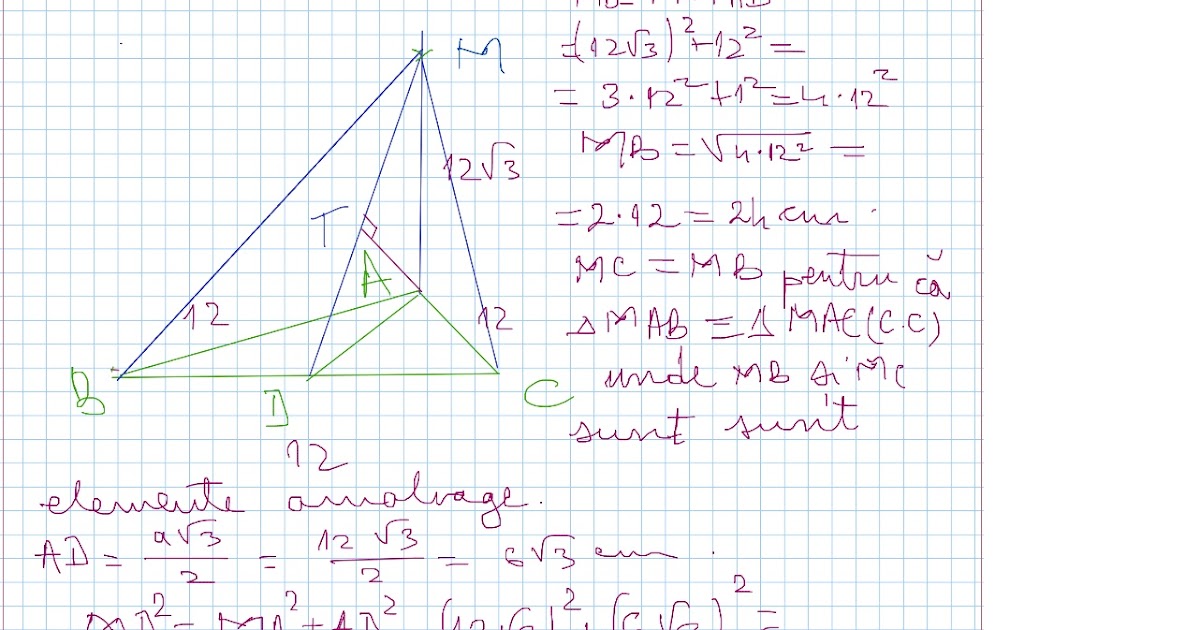 M
12√3
T
A
12
12
B
D
C
12
=(12√3)²+12²=
=3·12²+1²=4·12²
MB=√4·12²=
=2·12=24cm.
MC=MB pentru că
ΔMAB≡ΔMAC(C.C)
unde MB și MC
sunt sunt
elemente omoloage.
AD=a√3/2=12√3/2=6√3 cm.